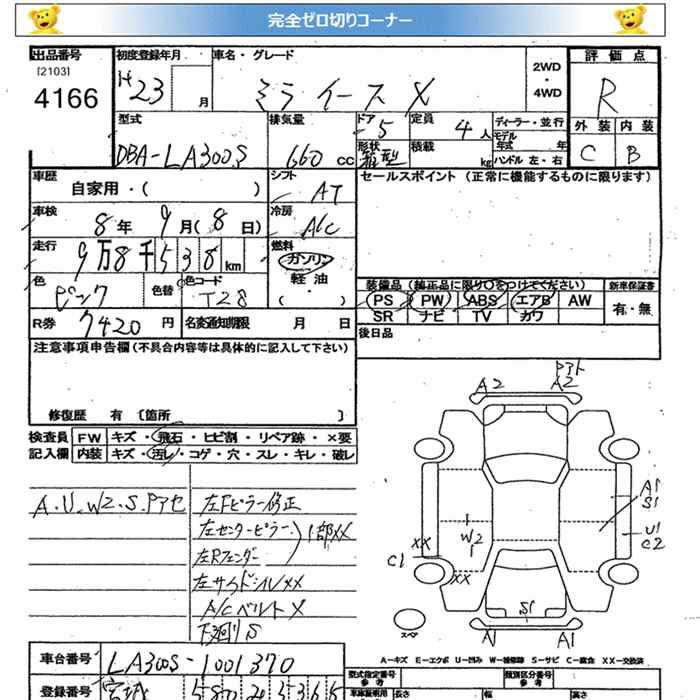 完全ゼロ切りコーナー
出品番号 初度登録年月 車名・グレード 2WD ・ 4WD 評価点
[2103]
4166 H23 月 ミライース X R
型式 排気量 ドア 5 定員 4人 ディーラー・並行 外装 内装
モデル年式 年
DBA-LA300S 660 cc 形状 箱型 積載 kg ハンドル 左・右 C B
車歴 シフト セールスポイント (正常に機能するものに限ります)
自家用・( ) AT
車検 8年 9月(8日) 冷房 A/C
走行 9万8千538km 燃料 ガソリン
軽油
・( )
色 ピンク 色替 色コード T28 装備品 (純正品に限り○をつけてください) 新車保証書
PS PW ABS エアB AW 有・無
SR ナビ TV カワ
R券 7420円 名変通知期限 月 日 後日品
注意事項申告欄(不具合内容等は具体的に記入して下さい)
修復歴 有 〔箇所 〕
検査員 FW キズ・飛石・ヒビ割・リペア跡・×要
記入欄 内装 キズ・汚レ・コゲ・穴・スレ・キレ・破レ
A.U.W2.S.Pアセ 左Fピラー修正
左センターピラー 1部XX
左Rフェンダー
左サイドシルXX
A/CベルトX
下廻りS
A2 Pアト A2
A1
S1
W2
U1
C2
XX
C1
XX
S1
スペア A1 A1
A-キズ E-エクボ U-凹み W-補修跡 S-サビ C-腐食 XX-交換済
車台番号 LA300S-1001370
型式指定番号 類別区分番号
参考 参考
登録番号 宮城 長さ 幅 高さ